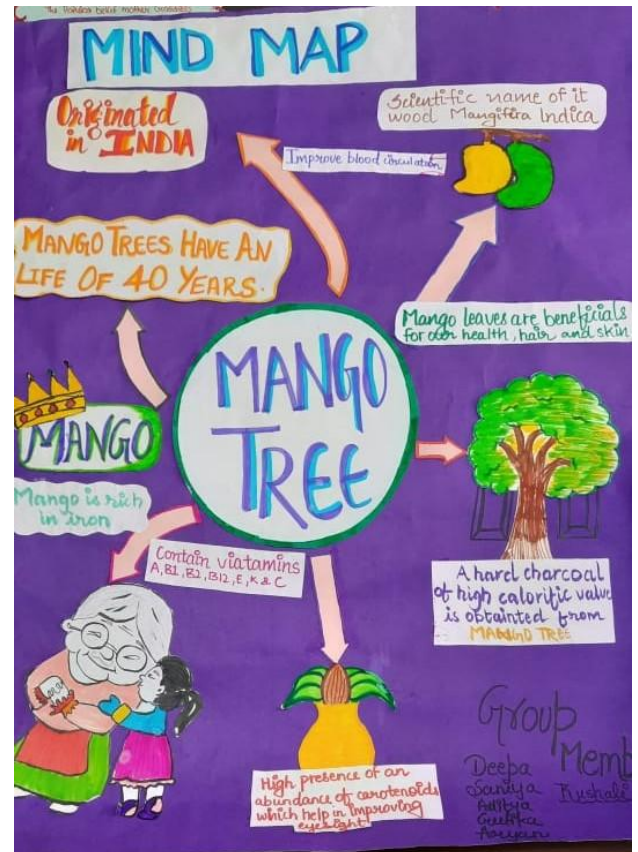 MIND MAP
Originated
in INDIA
Scientific name of it
wood Mangifera Indica
Improve blood circulation
MANGO TREES HAVE AN
LIFE OF 40 YEARS.
Mango leaves are beneficials
for our health, hair and skin
MANGO
TREE
MANGO
Mango is rich
in iron
Contain viatamins
A, B1, B2, B12, E, K & C
A hard charcoal
of high calorific value
is obtainted from
MANGO TREE
High presence of an
abundance of carotenoids
which help in improving
eyesight
Group
Memb
Deepa
Saniya
Aditya
Geetika
Aaryan
Kushali